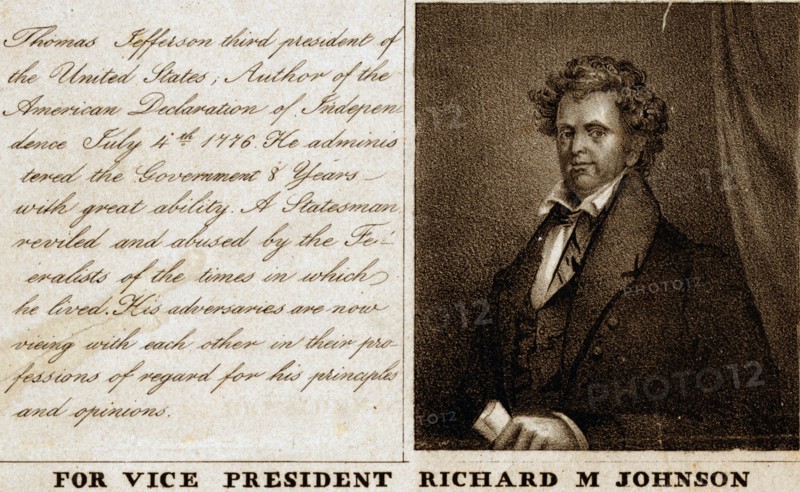 Thomas Jefferson third president of
the United States; Author of the
American Declaration of Indepen
dence July 4th 1776. He adminis
tered the Government 8 Years
with great ability. A Statesman
reviled and abused by the Fe-
eralists of the times in which
he lived. His adversaries are now
vieing with each other in their pro-
fessions of regard for his principles
and opinions.
PHOTO12
PHOTO12
PHOTO12
FOR VICE PRESIDENT RICHARD M JOHNSON